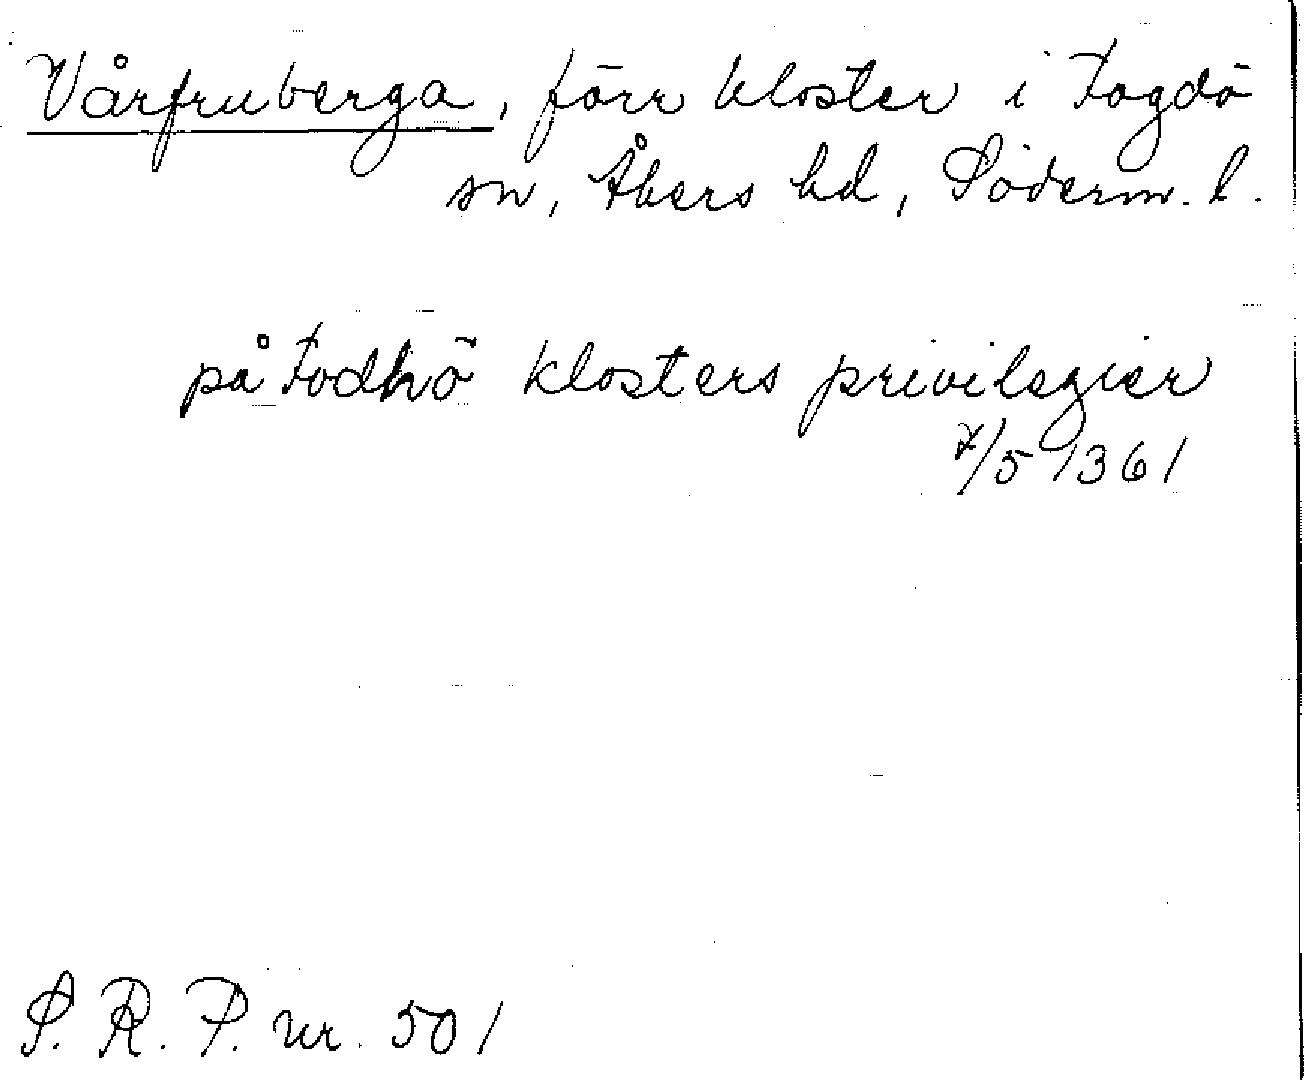 Vårfruberga, förr kloster i Fogdö
sn, Åkers hd, Söderm. l.
på Fodhö klosters privilegier
7/5 1361
S. R. P. nr. 501